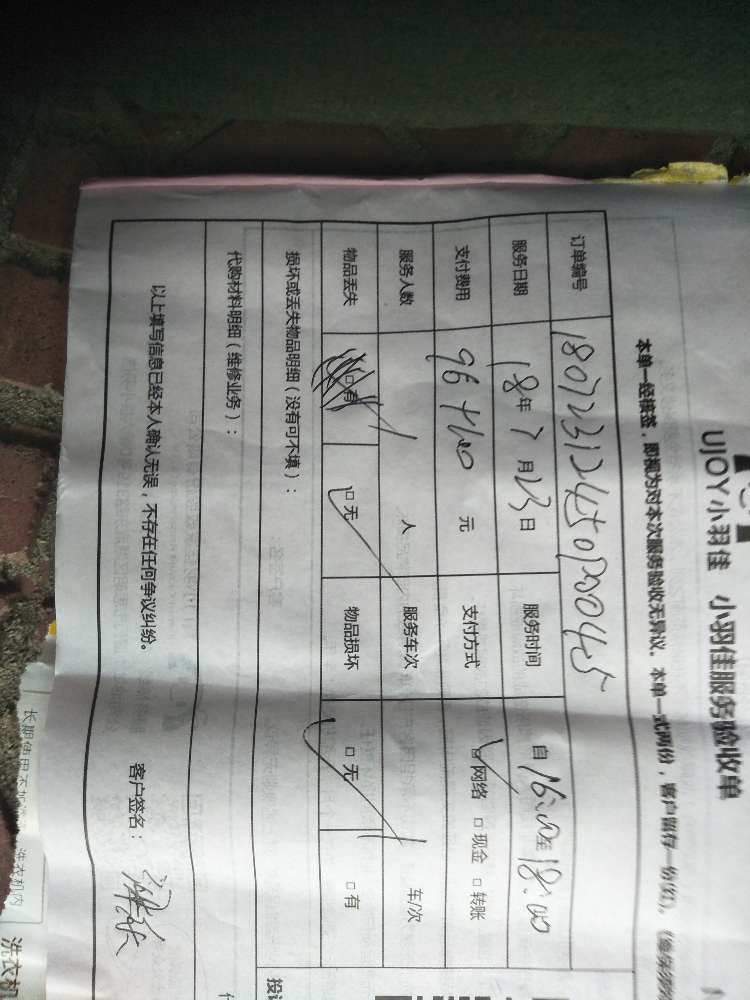 UJOY小羽佳 小羽佳服务验收单
本单一经接签,即视为对本次服务验收无异议。本单一式两份,客户留存一份(红)。
订单编号
服务日期 18年7月23日 服务时间 自16:00至18:00
支付费用 元 支付方式 □网络 □现金 □转账
服务人数 人 服务车次 车/次
物品丢失 □有 □无 物品损坏 □无 □有
损坏或丢失物品明细(没有可不填):
代购材料明细(维修业务):
以上填写信息已经本人确认无误,不存在任何争议纠纷。
客户签名:
投
洗衣机内
洗衣机